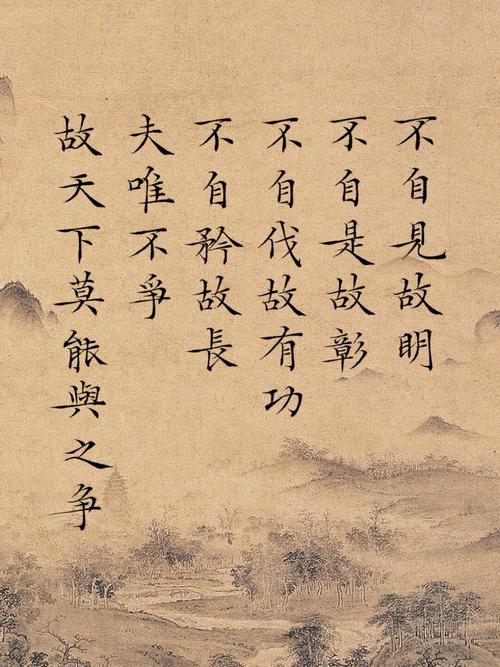 不自見故明
不自是故彰
不自伐故有功
不自矜故長
夫唯不爭
故天下莫能與之争